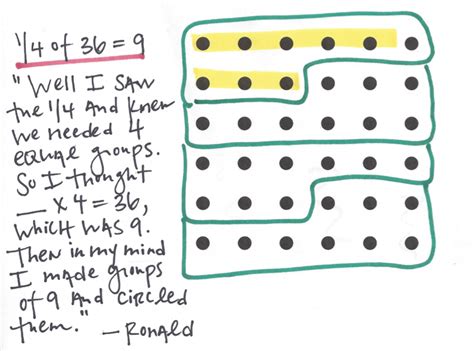 1/4 of 36 = 9
"Well I saw
the 1/4 and knew
we needed 4
equal groups.
So I thought
__ x 4 = 36,
which was 9.
Then in my mind
I made groups
of 9 and circled
them." - Ronald